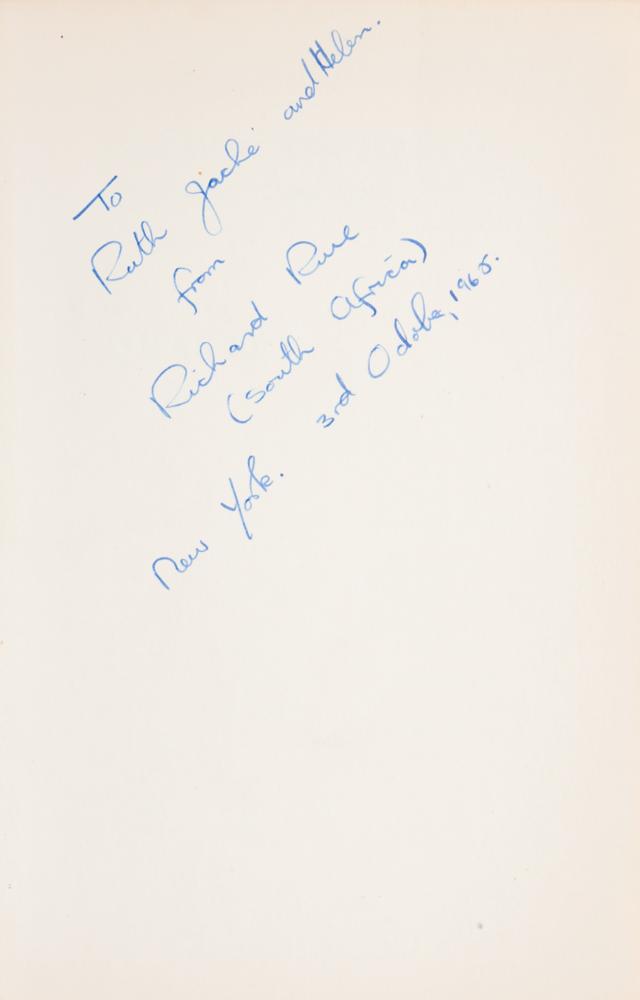 To
Ruth Jackie and Helen.
from
Richard Rive
(South Africa)
New York. 3rd October, 1965.